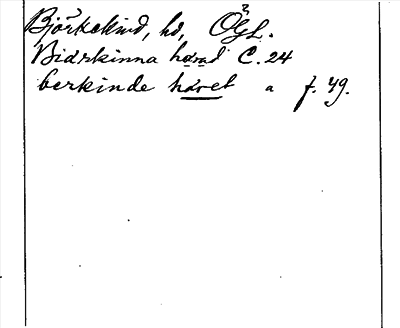 Björkekind, hd, ÖGL.
Bidrkinna harad C. 24
berkinde häret a f. 49.